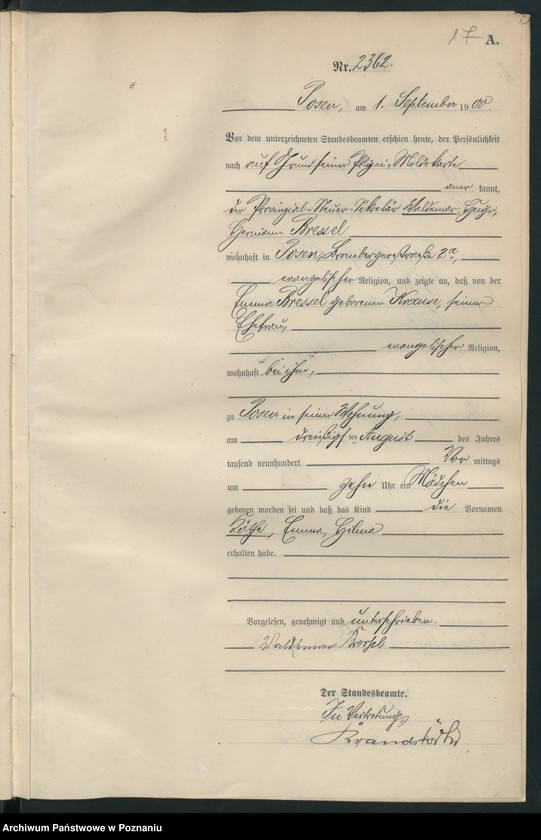 A.
Nr. 2362.
Posen, am 1. September 1900.
Vor dem unterzeichneten Standesbeamten erschien heute, der Persönlichkeit
nach auf Grund seiner Polizei-Meldekarte
aner kannt,
der Provinzial-Steuer-Sekretär Waldemar, Hugo,
Hermann Bressel
wohnhaft in Posen, Brombergerstraße 2a,
evangelischer Religion, und zeigte an, daß von der
Emma Bressel geborenen Krause, seiner
Ehefrau,
evangelischer Religion,
wohnhaft bei ihm,
zu Posen in seiner Wohnung,
am dreißigsten August des Jahres
tausend neunhundert Vor mittags
um zehn Uhr ein Mädchen
geboren worden sei und daß das Kind die Vornamen
Käthe, Emma,
erhalten habe.
Vorgelesen, genehmigt und unterschrieben.
Waldemar Bressel
Der Standesbeamte.
In Vertretung,
Archiwum Państwowe w Poznaniu